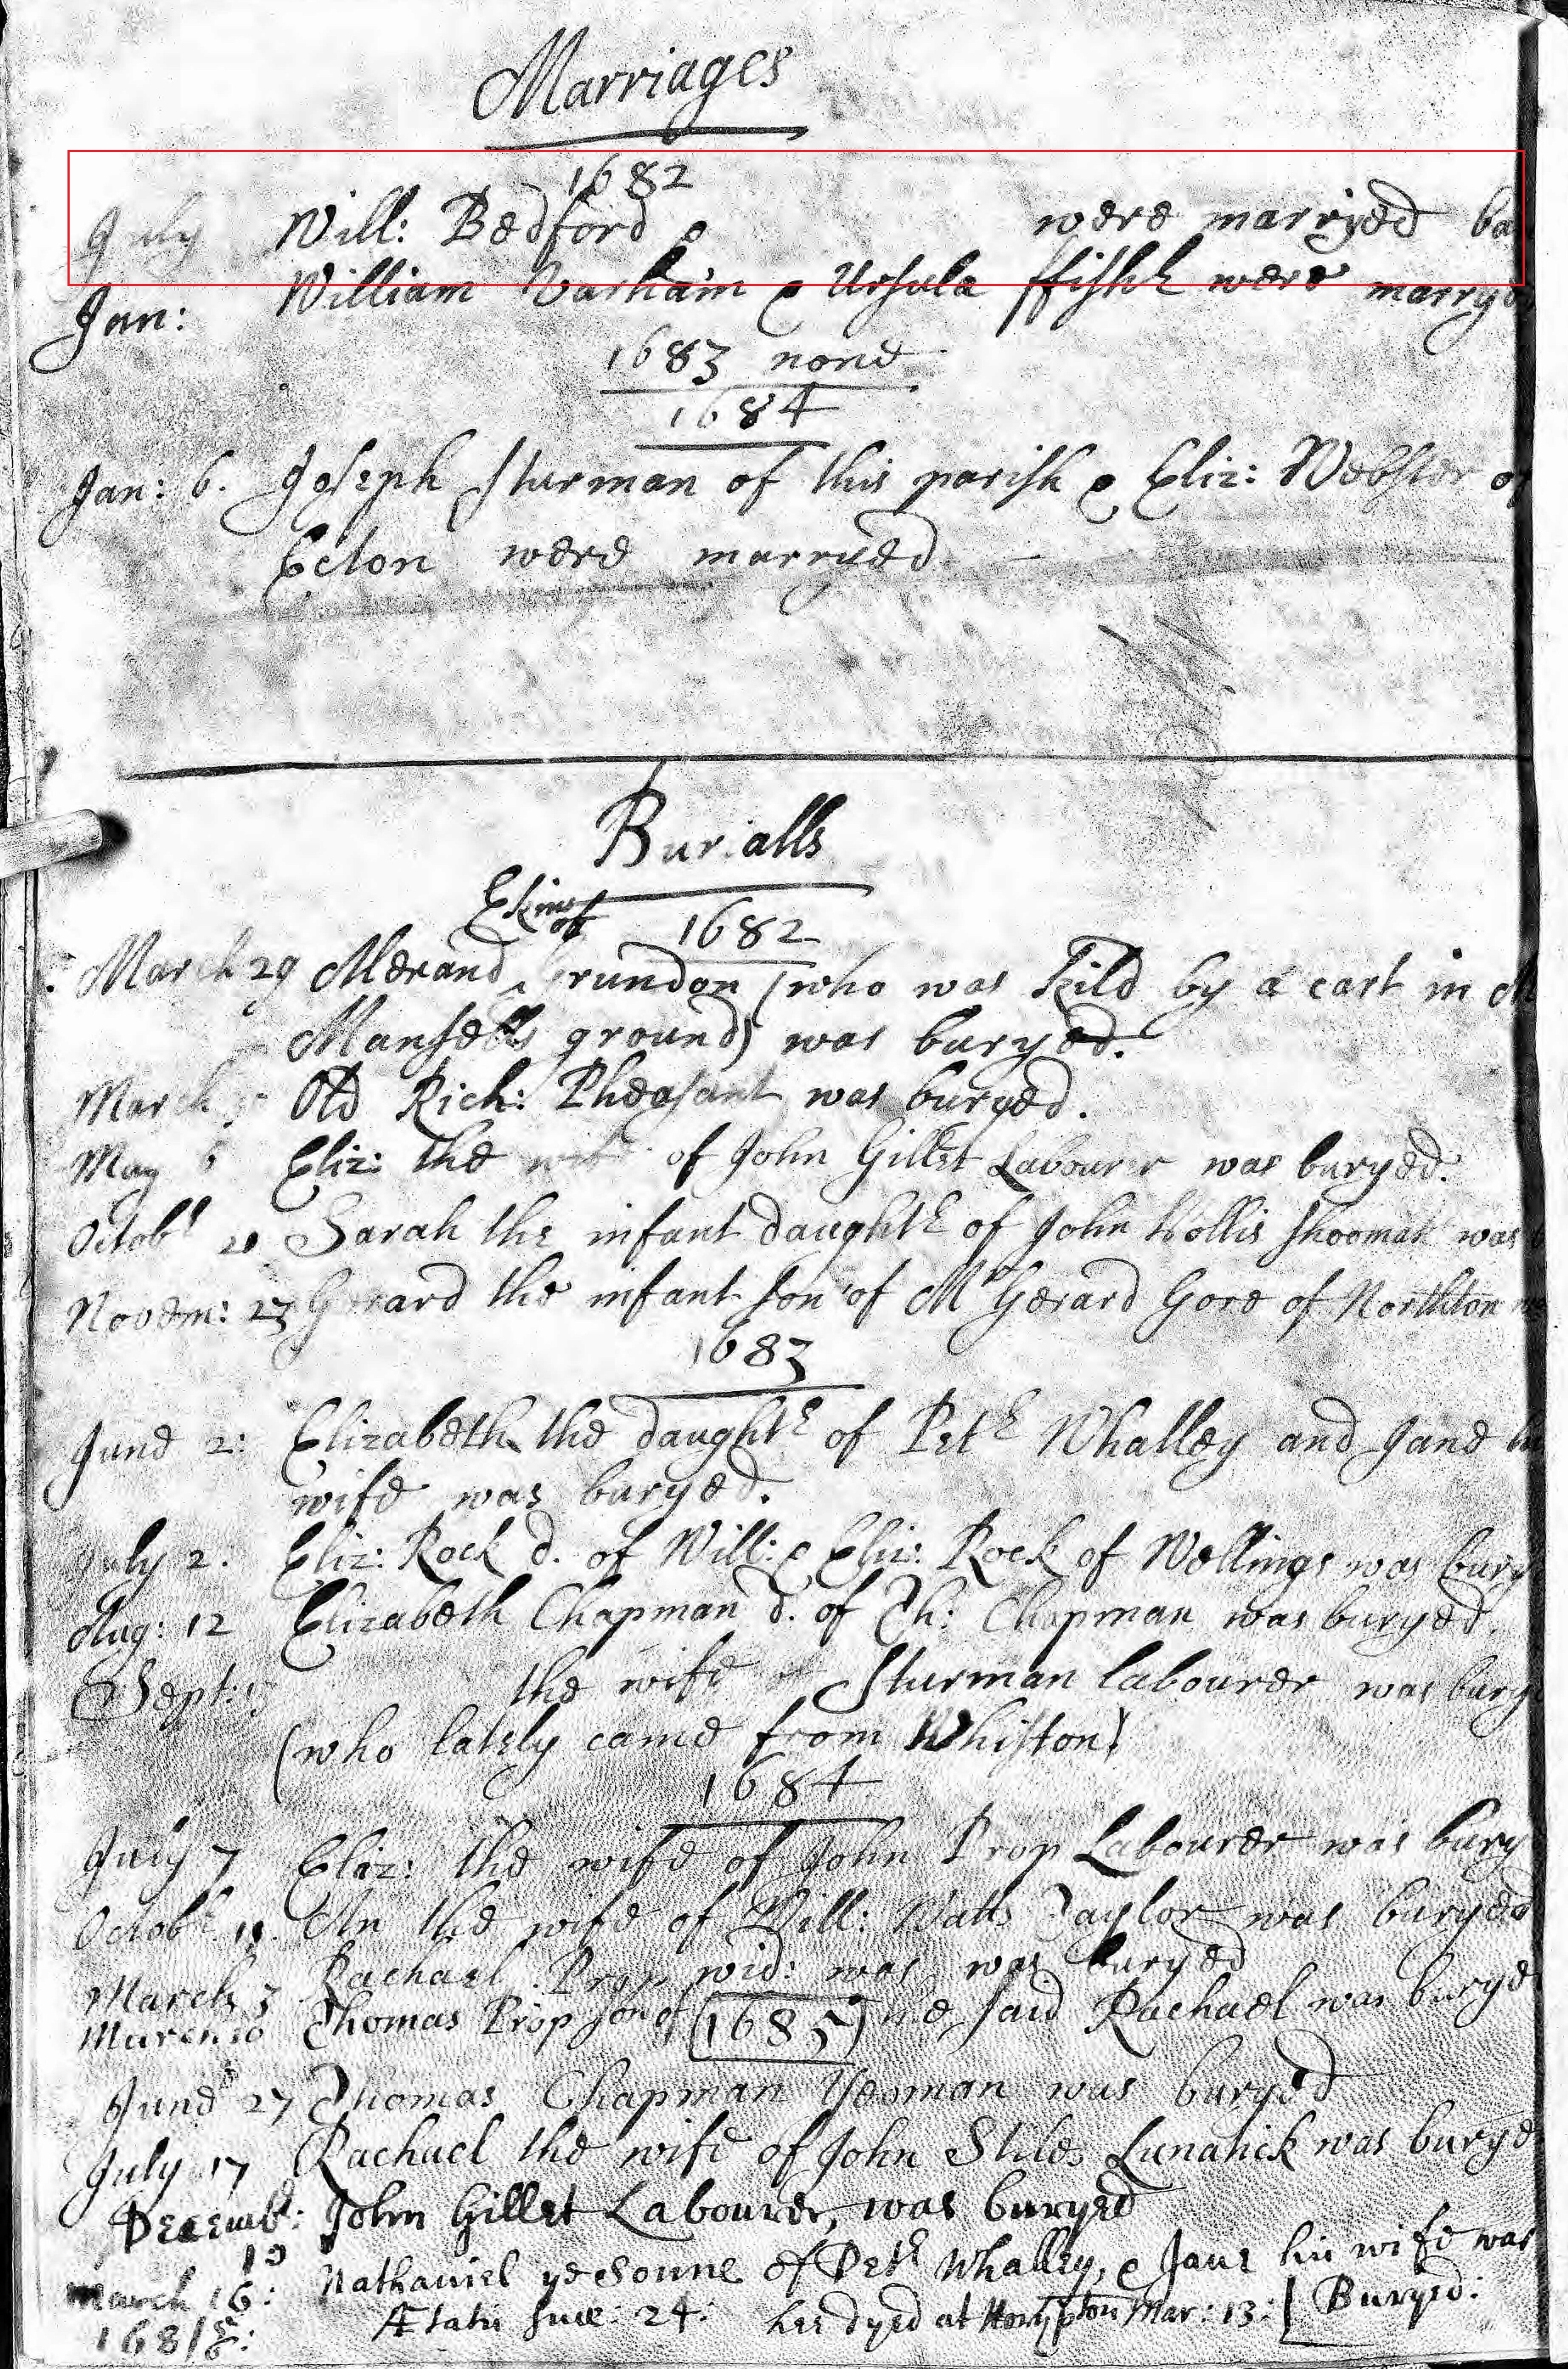 Marriages
1682
July Will: Bedford & were marryed
Jan: William Varham & Ursula ffish were marryed
1683 none
1684
Jan: 6. Joseph Sturman of this parish & Eliz: Webster of
Ecton were marryed
Burialls
1682
March 29 Merand Grundon (who was kild by a cart in
Mansells ground) was buryed.
March Old Rich: Pheasant was buryed.
May 6 Eliz: the wife of John Gillet Labourer was buryed.
Octobr 20 Sarah the infant daughtr of John Hollis shoomak was
Novem: 27 Gerard the infant son of Mr Gerard Gore of Northton
1683
June 2: Elizabeth the daughtr of Petr Whalley and Jane
wife was buryed.
July 2. Eliz: Rock d. of Will: & Eliz: Rock of Wellings was bury
Aug: 12 Elizabeth Chapman d. of Th: Chapman was buryed.
Sept: the wife of Sturman labourer was burye
(who lately came from Whiston)
1684
July 7 Eliz: the wife of John Prop Labourer was bury
Octobr An the wife of Will: Watts Taylor was buryed
March 3 Rachael Prop wid: was was buryed
March 10 Thomas Prop son of the said Rachael was burye
(1685)
June 27 Thomas Chapman Yeoman was buryed
July 17 Rachael the wife of John Stiles Lunatick was burye
Decembr: John Gillet Labourer, was buryed
10
March 16: Nathaniel ye Sonne of Petr Whalley, & Jane his wife was
168 Ætatis suæ: 24: hee dyed at Mar: 13: Buryed: